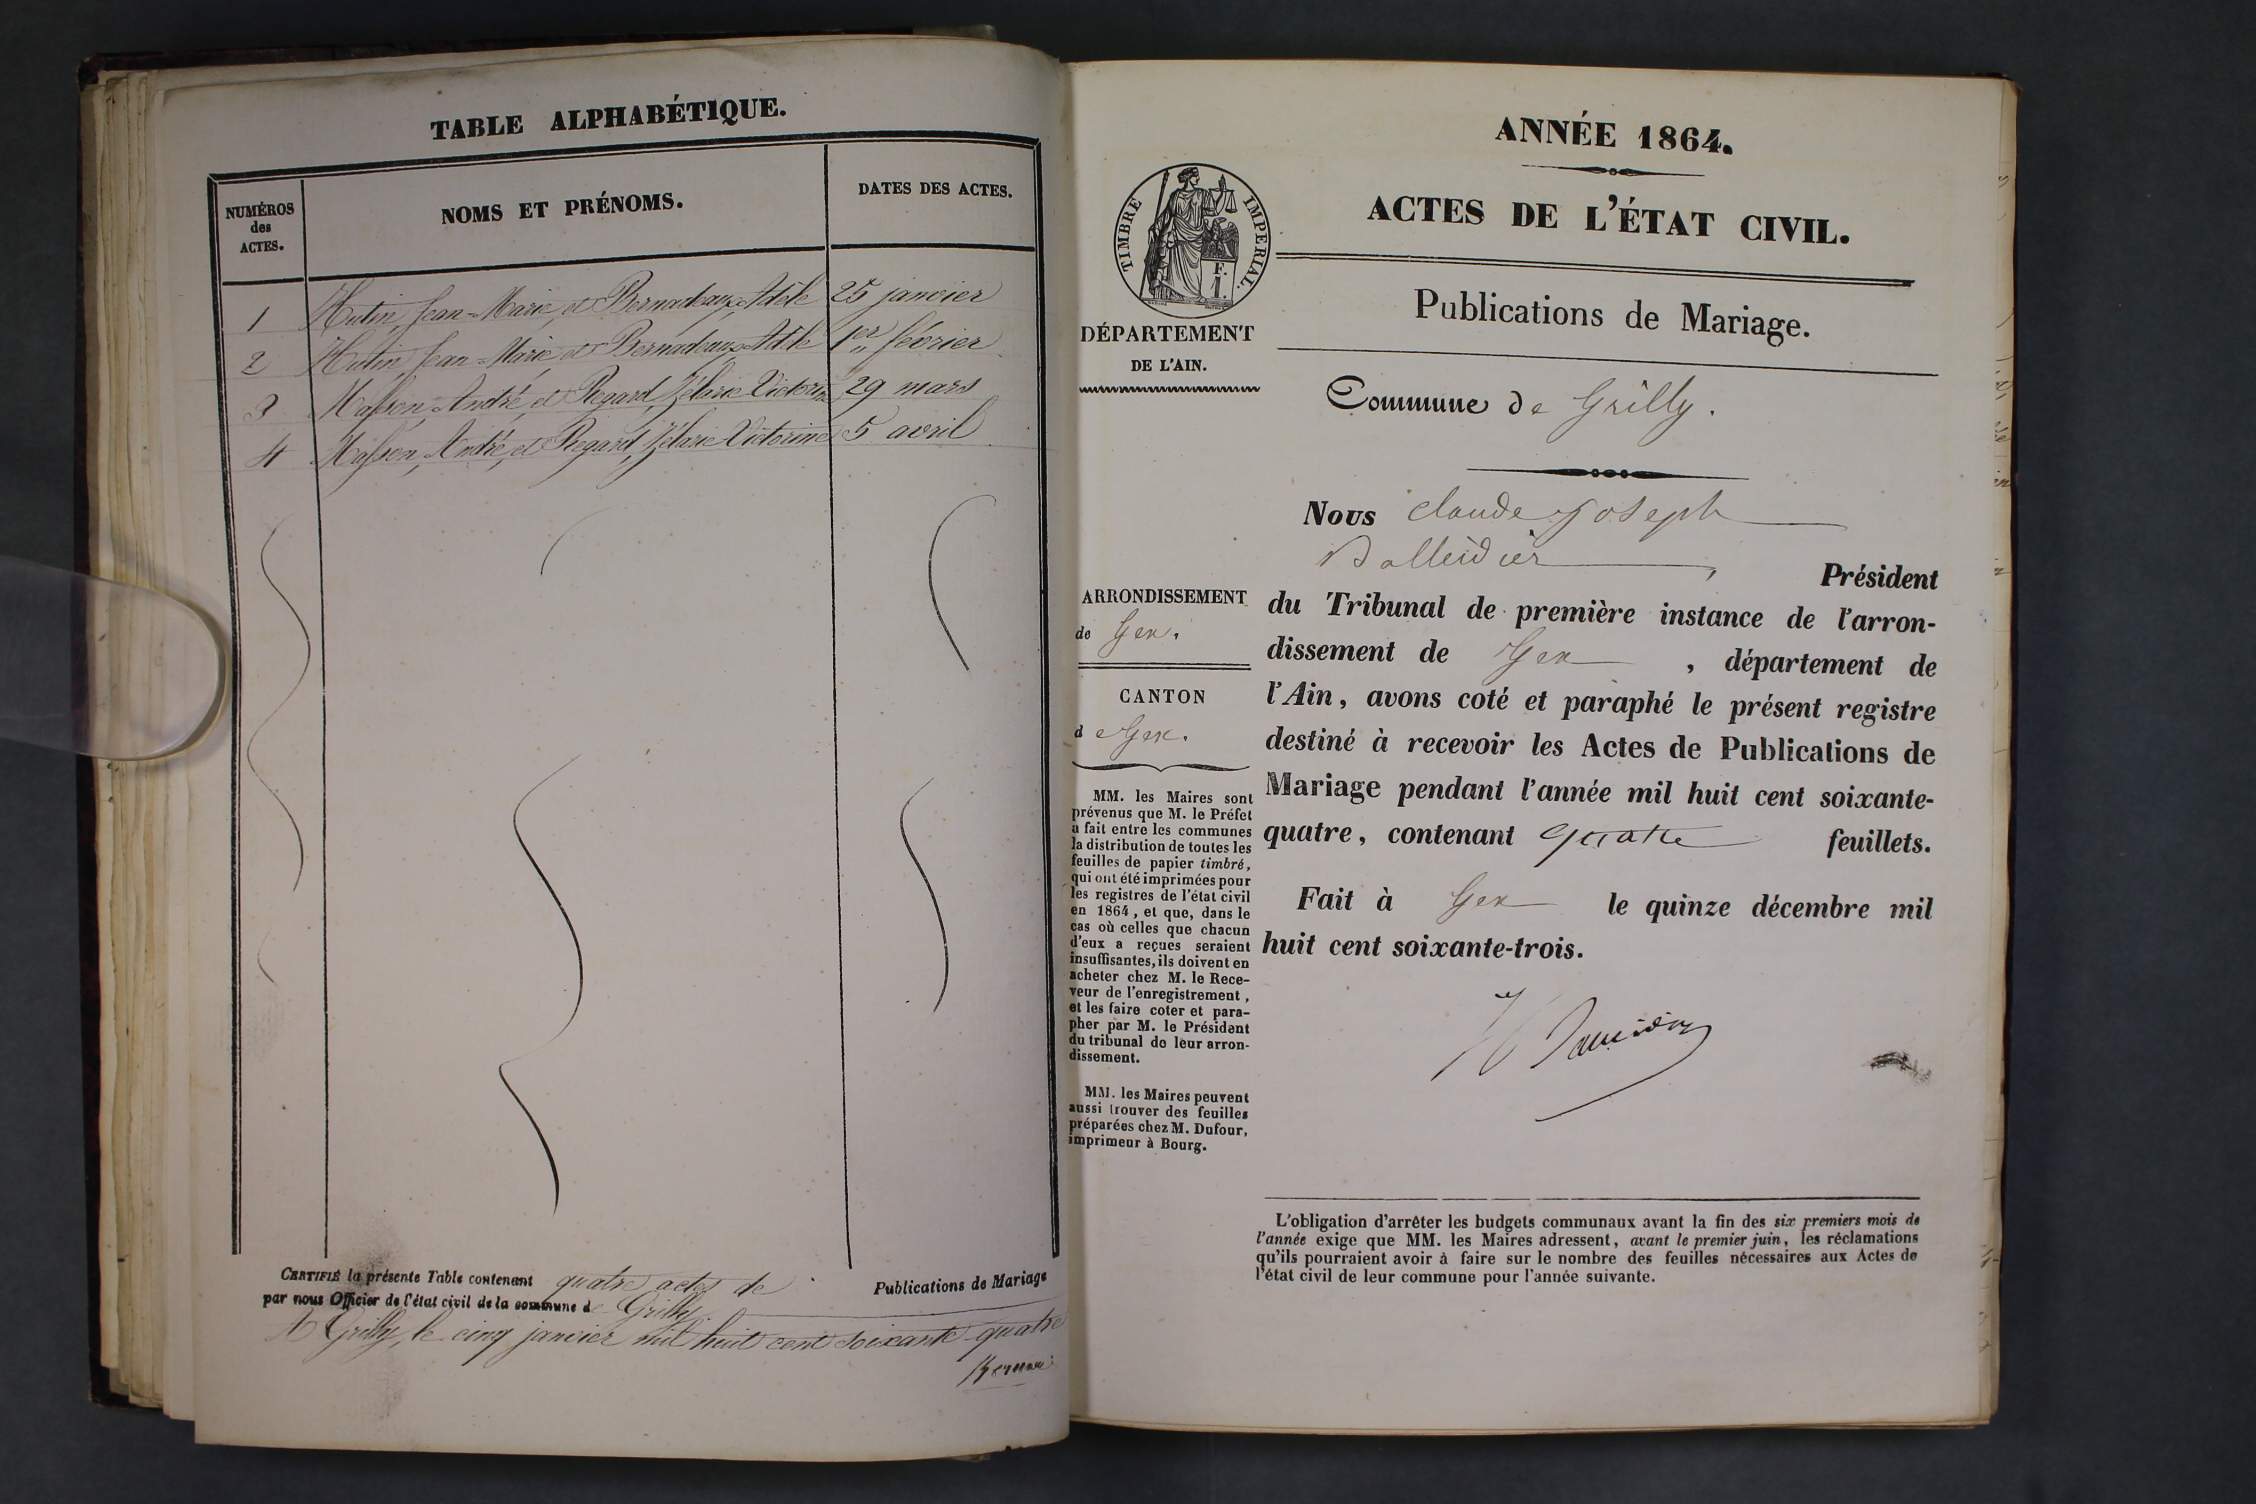 TABLE ALPHABÉTIQUE.
NUMÉROS
des
ACTES.
NOMS ET PRÉNOMS.
DATES DES ACTES.
1 Hutin, Jean-Marie, et Bernadeaux Adèle 25 janvier
2 Hutin, Jean-Marie et Bernadeaux Adèle 1er février
3 Masson, André, et Regard, Zélarie Victorine 29 mars
4 Masson, André, et Regard, Zélarie Victorine 5 avril
CERTIFIÉ la présente Table contenant quatre actes de Publications de Mariage
par nous Officier de l'état civil de la commune de Grilly
A Grilly, le cinq janvier mil huit cent soixante-quatre
ANNÉE 1864.
ACTES DE L'ÉTAT CIVIL.
TIMBRE IMPERIAL.
F.
1.
DÉPARTEMENT
DE L'AIN.
Publications de Mariage.
Commune de Grilly.
ARRONDISSEMENT
de Gex.
CANTON
de Gex.
MM. les Maires sont
prévenus que M. le Préfet
a fait entre les communes
la distribution de toutes les
feuilles de papier timbré,
qui ont été imprimées pour
les registres de l'état civil
en 1864, et que, dans le
cas où celles que chacun
d'eux a reçues seraient
insuffisantes, ils doivent en
acheter chez M. le Rece-
veur de l'enregistrement,
et les faire coter et para-
pher par M. le Président
du tribunal de leur arron-
dissement.
MM. les Maires peuvent
aussi trouver des feuilles
préparées chez M. Dufour,
imprimeur à Bourg.
Nous Claude Joseph
Balleidier, Président
du Tribunal de première instance de l'arron-
dissement de Gex, département de
l'Ain, avons coté et paraphé le présent registre
destiné à recevoir les Actes de Publications de
Mariage pendant l'année mil huit cent soixante-
quatre, contenant quatre feuillets.
Fait à Gex le quinze décembre mil
huit cent soixante-trois.
L'obligation d'arrêter les budgets communaux avant la fin des six premiers mois de
l'année exige que MM. les Maires adressent, avant le premier juin, les réclamations
qu'ils pourraient avoir à faire sur le nombre des feuilles nécessaires aux Actes de
l'état civil de leur commune pour l'année suivante.